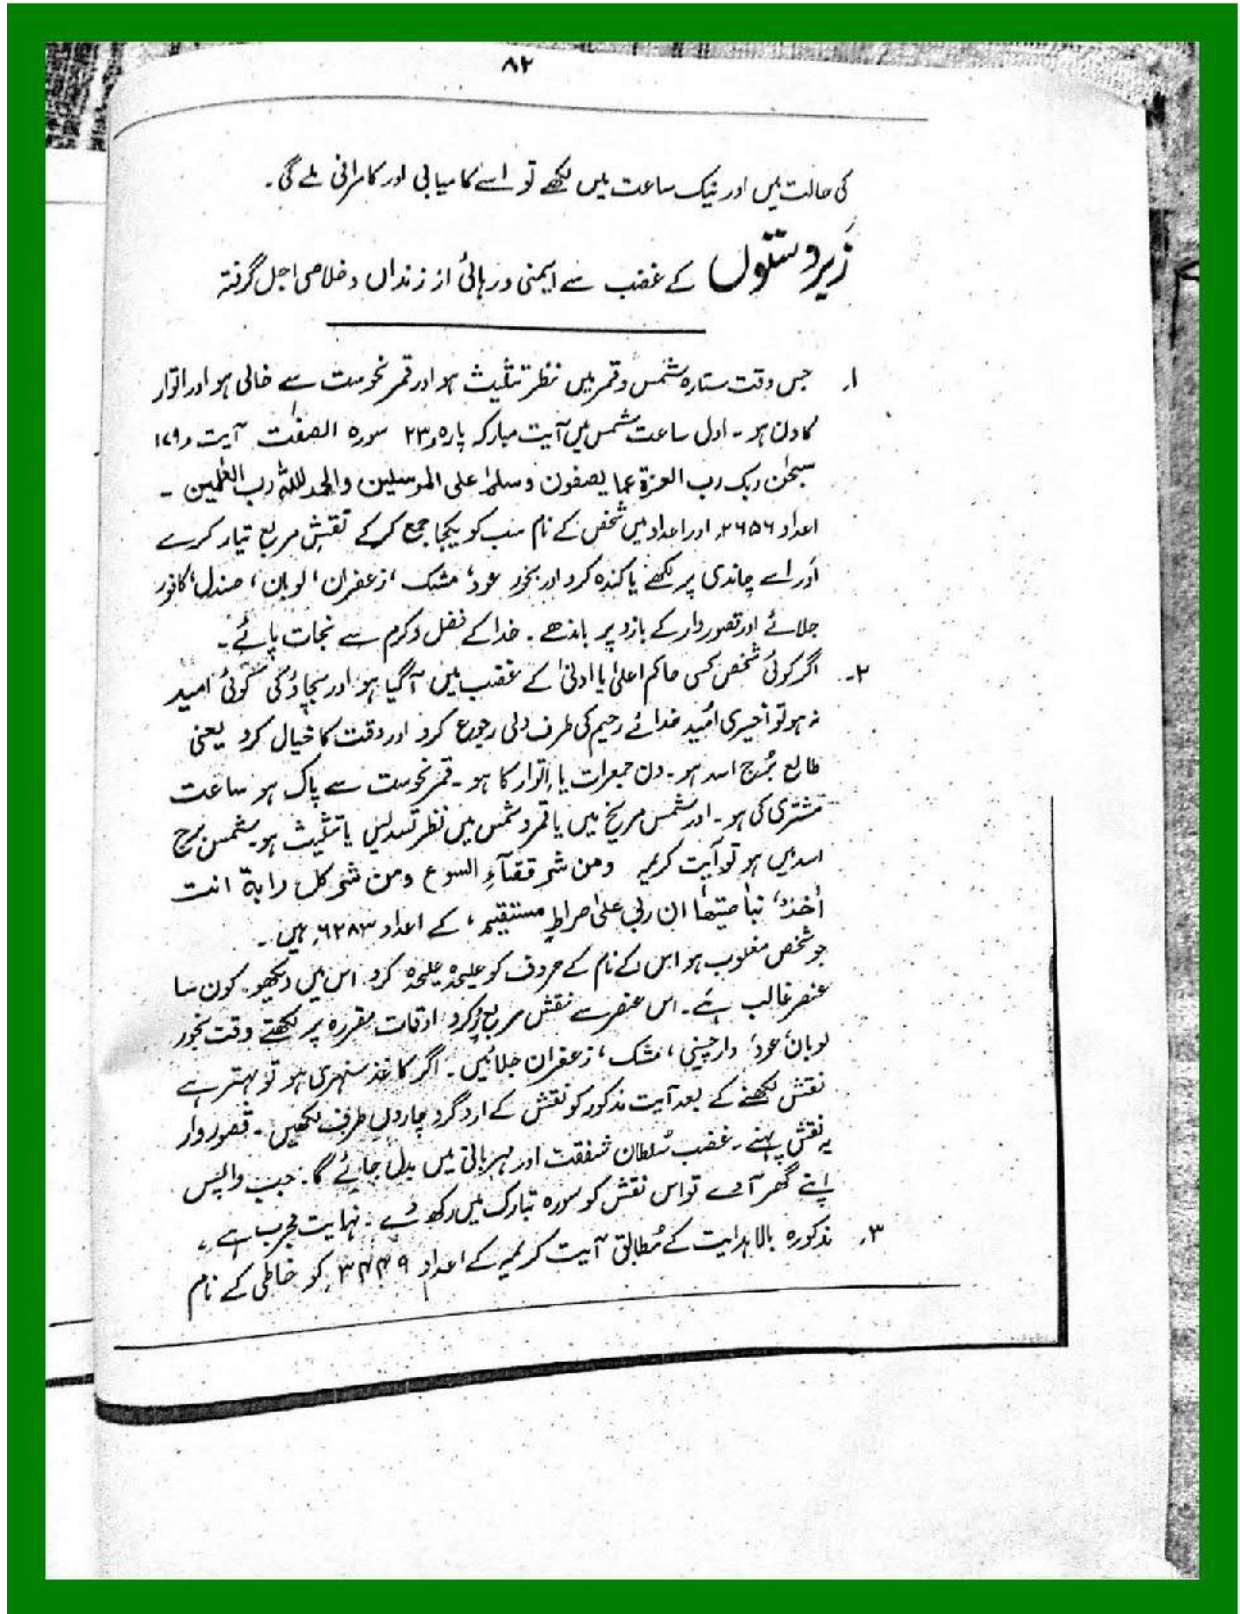 ۸۲
کی حالت میں اور نیک ساعت میں لکھے تو اسے کامیابی اور کامرانی ملے گی۔
زیردستوں کے غضب سے ایمنی و رہائی از زنداں و خلاصی اجل گرفتہ
۱۔ جس وقت ستارہ شمس و قمر میں نظر تثلیث ہو اور قمر نحوست سے خالی ہو اور اتوار
کا دن ہو۔ اول ساعت شمس میں آیت مبارکہ پارہ ۲۳ سورہ الصفٰت آیت ۱۷۹
سبحٰن ربک رب العزۃ عما یصفون وسلم علی المرسلین والحمد للہ رب العٰلمین ۔
اعداد ۲۶۵۶ اور اعداد میں شخص کے نام سب کو یکجا جمع کر کے نقش مربع تیار کرے
اور اسے چاندی پر لکھے یا کندہ کرو اور بخور عود، مشک، زعفران، لوبان، صندل، کافور
جلائے اور قصوروار کے بازو پر باندھے۔ خدا کے فضل و کرم سے نجات پائے۔
۲۔ اگر کوئی شخص کسی حاکم اعلیٰ یا ادنیٰ کے غضب میں آ گیا ہو اور بچاؤ کی کوئی امید
نہ ہو تو اخیری امید خدائے رحیم کی طرف دلی رجوع کرو اور وقت کا خیال کرو یعنی
طالع برج اسد ہو۔ دن جمعرات یا اتوار کا ہو۔ قمر نحوست سے پاک ہو ساعت
مشتری کی ہو۔ اور شمس مریخ میں یا قمر و شمس میں نظر تسدیس یا تثلیث ہو۔ شمس برج
اسد میں ہو تو آیت کریمہ ومن شر قضآء السوع ومن شر کل دابۃ انت
اٰخذ، بناصیتھا ان ربی علیٰ صراط مستقیم، کے اعداد ۶۲۸۳ ہیں۔
جو شخص مغلوب ہو اس کے نام کے حروف کو علیحدہ علیحدہ کرو۔ اس میں دیکھو۔ کون سا
عنصر غالب ہے۔ اس عنصر سے نقش مربع پُر کرو اوقات مقررہ پر لکھتے وقت بخور
لوبان، عود، دارچینی، مشک، زعفران جلائیں۔ اگر کاغذ سنہری ہو تو بہتر ہے
نقش لکھنے کے بعد آیت مذکور کو نقش کے ارد گرد چاروں طرف لکھیں۔ قصوروار
یہ نقش پہنے۔ غضب سُلطان شفقت اور مہربانی میں بدل جائے گا۔ جب واپس
اپنے گھر آوے تو اس نقش کو سورہ تبارک میں رکھ دے۔ نہایت مجرب ہے۔
۳۔ مذکورہ بالا ہدایت کے مُطابق آیت کریمہ کے اعداد ۳۴۴۹ کو خاطی کے نام